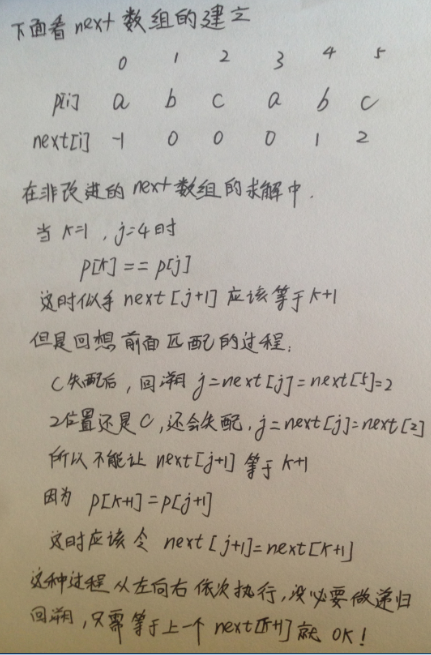 下面看next数组的建立
0 1 2 3 4 5
p[i] a b c a b c
next[i] -1 0 0 0 1 2
在非改进的next数组的求解中.
当 k=1 , j=4时
p[k] == p[j]
这时似乎 next [j+1] 应该等于k+1
但是回想前面匹配的过程:
C失配后, 回溯 j=next[j]=next[5]=2
2位置还是C,还会失配, j=next[j]=next[2]
所以不能让 next[j+1] 等于 k+1
因为 p[k+1]=p[j+1]
这时应该令 next [j+1]=next[k+1]
这种过程从左向右依次执行,没必要做递归
回溯,只需等于上一个next[k+1]就 OK!